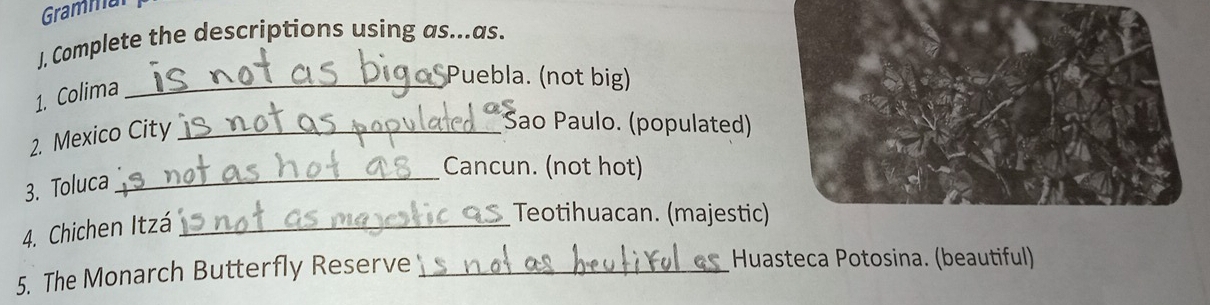 J. Complete the descriptions using as...as.
1. Colima is not as big as Puebla. (not big)
2. Mexico City is not as populated as Sao Paulo. (populated)
3. Toluca is not as hot as Cancun. (not hot)
4. Chichen Itzá is not as majestic as Teotihuacan. (majestic)
5. The Monarch Butterfly Reserve is not as beutiful as Huasteca Potosina. (beautiful)